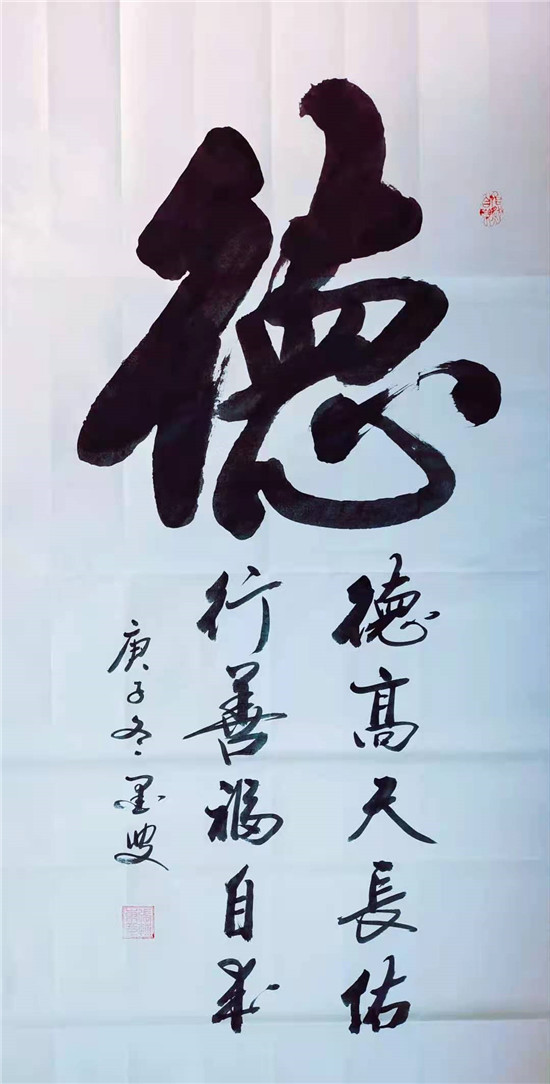 德
德高天長佑
行善福自來
庚子冬墨叟